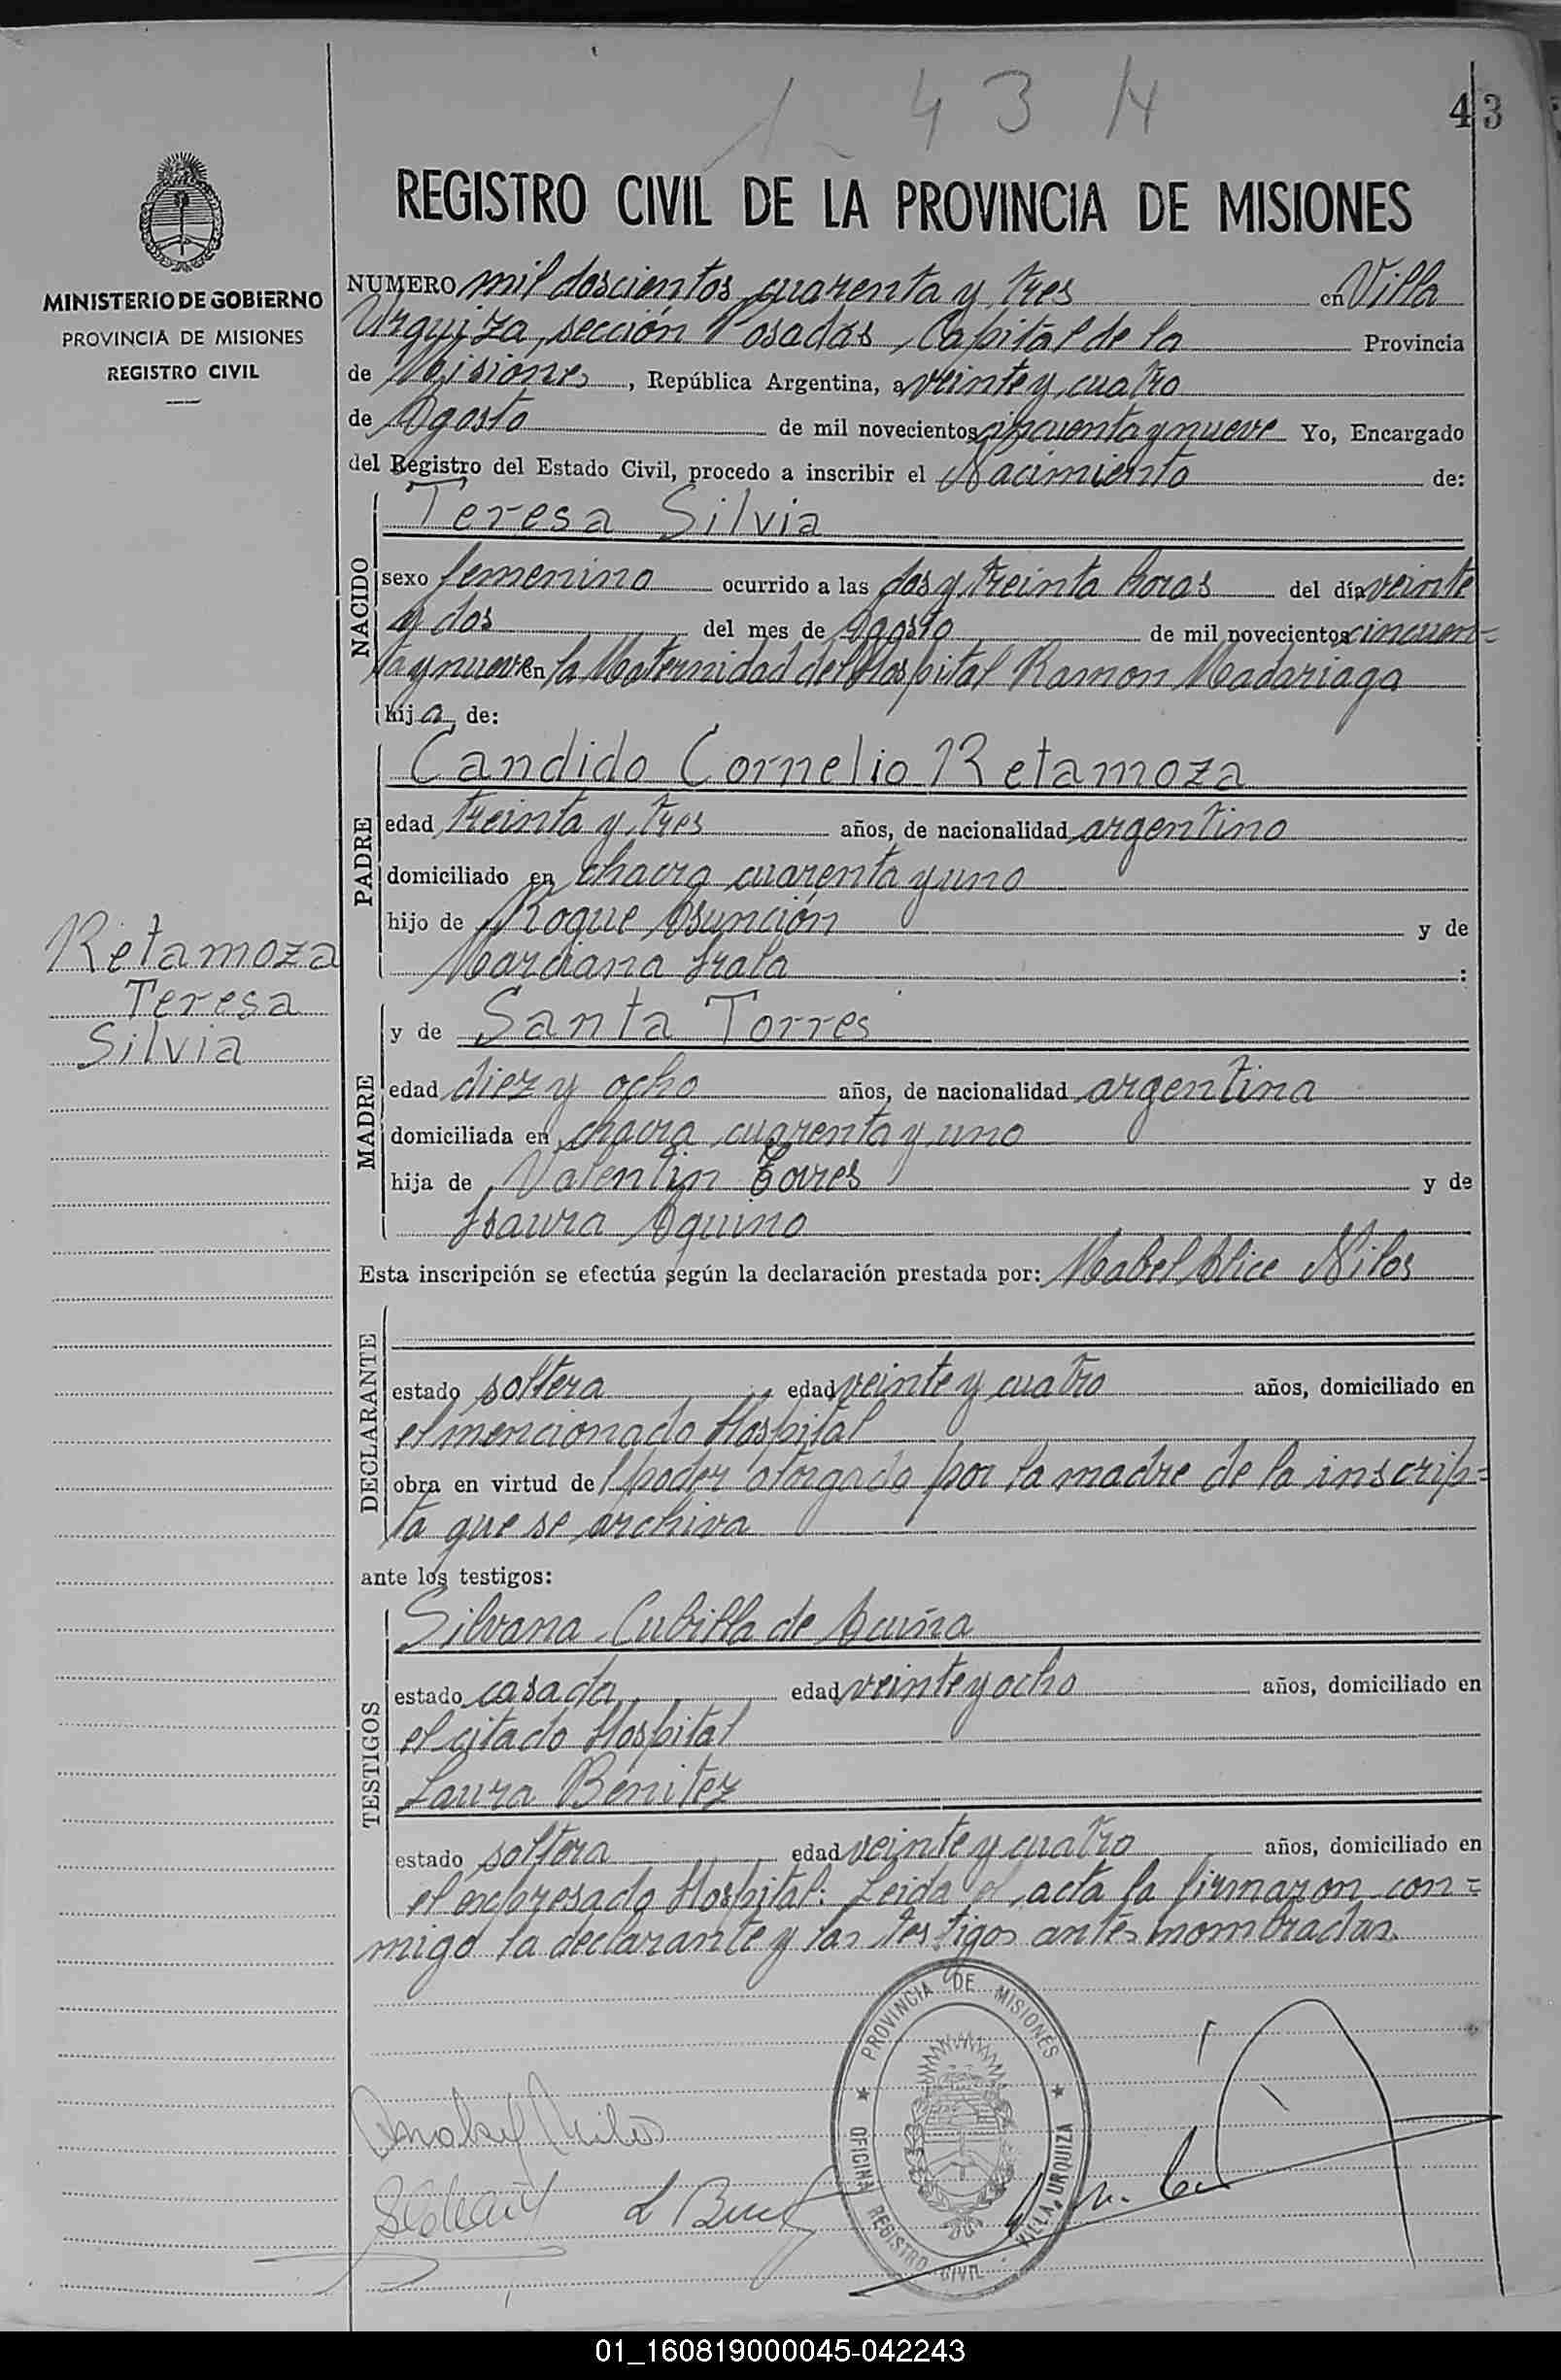 43
REGISTRO CIVIL DE LA PROVINCIA DE MISIONES
MINISTERIO DE GOBIERNO
PROVINCIA DE MISIONES
REGISTRO CIVIL
NUMERO mil doscientos cuarenta y tres en Villa
Urquiza, sección Posadas, Capital de la Provincia
de Misiones, República Argentina, a veinte y cuatro
de Agosto de mil novecientos cincuenta y nueve Yo, Encargado
del Registro del Estado Civil, procedo a inscribir el Nacimiento de:
NACIDO
Teresa Silvia
sexo femenino ocurrido a las dos y treinta horas del día veinte
y dos del mes de Agosto de mil novecientos cincuen=
ta y nueve en la Maternidad del Hospital Ramon Madariaga
hija de:
PADRE
Candido Cornelio Retamoza
edad treinta y tres años, de nacionalidad argentino
domiciliado en chacra cuarenta y uno
hijo de Roque Asunción y de
Marciana Irala :
Retamoza
Teresa
Silvia
MADRE
y de Santa Torres
edad diez y ocho años, de nacionalidad argentina
domiciliada en chacra cuarenta y uno
hija de Valentin Torres y de
Isaura Aquino
Esta inscripción se efectúa según la declaración prestada por: Mabel Alice Milos
DECLARANTE
estado soltera edad veinte y cuatro años, domiciliado en
el mencionado Hospital
obra en virtud de poder otorgado por la madre de la inscrip=
ta que se archiva
ante los testigos:
TESTIGOS
Silvana Cubilla de Acuña
estado casada edad veinte y ocho años, domiciliado en
el citado Hospital
Laura Benitez
estado soltera edad veinte y cuatro años, domiciliado en
el expresado Hospital: Leida el acta la firmaron con=
migo la declarante y las testigos antes nombradas.
PROVINCIA DE MISIONES
OFICINA REGISTRO CIVIL VILLA URQUIZA
01_160819000045-042243